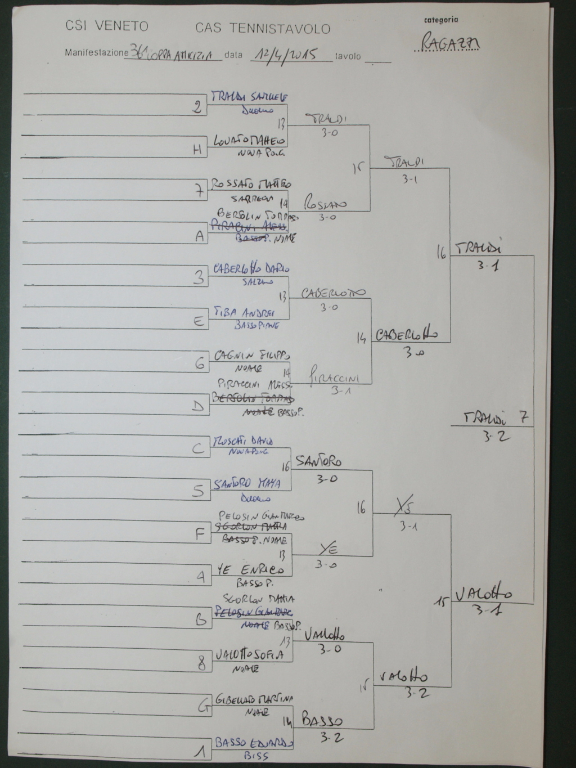 CSI VENETO CAS TENNISTAVOLO categoria
Manifestazione data 12/4/2015 tavolo
RAGAZZI
2 TRALDI SAMUELE
H LOVATO MATTEO
NOVA
13 TRALDI
3-0
7 ROSSATO MATTEO
14 ROSSATO
3-0
BERTOLIN TOMMASO
A
BASSO P. NOALE
15 TRALDI
3-1
3 CABERLOTTO DARIO
SALZANO
E TIBA ANDREI
BASSO PIAVE
13 CABERLOTTO
3-0
6 CAGNIN FILIPPO
NOALE
PIRACCINI
D BERTOLIN TOMMASO
NOALE BASSO P.
14 PIRACCINI
3-1
14 CABERLOTTO
3-0
16 TRALDI
3-1
TRALDI 7
3-2
C DAVID
5 SANTORO MAYA
16 SANTORO
3-0
PELOSIN
F SGORLON MATTIA
BASSO P. NOALE
4 YE ENRICO
BASSO P.
13 YE
3-0
16 YE
3-1
SGORLON MATTIA
B PELOSIN
NOALE BASSO P.
8 VALOTTO SOFIA
NOALE
13 VALOTTO
3-0
G MARTINA
NOALE
1 BASSO EDUARDO
BISS
14 BASSO
3-2
15 VALOTTO
3-2
15 VALOTTO
3-1